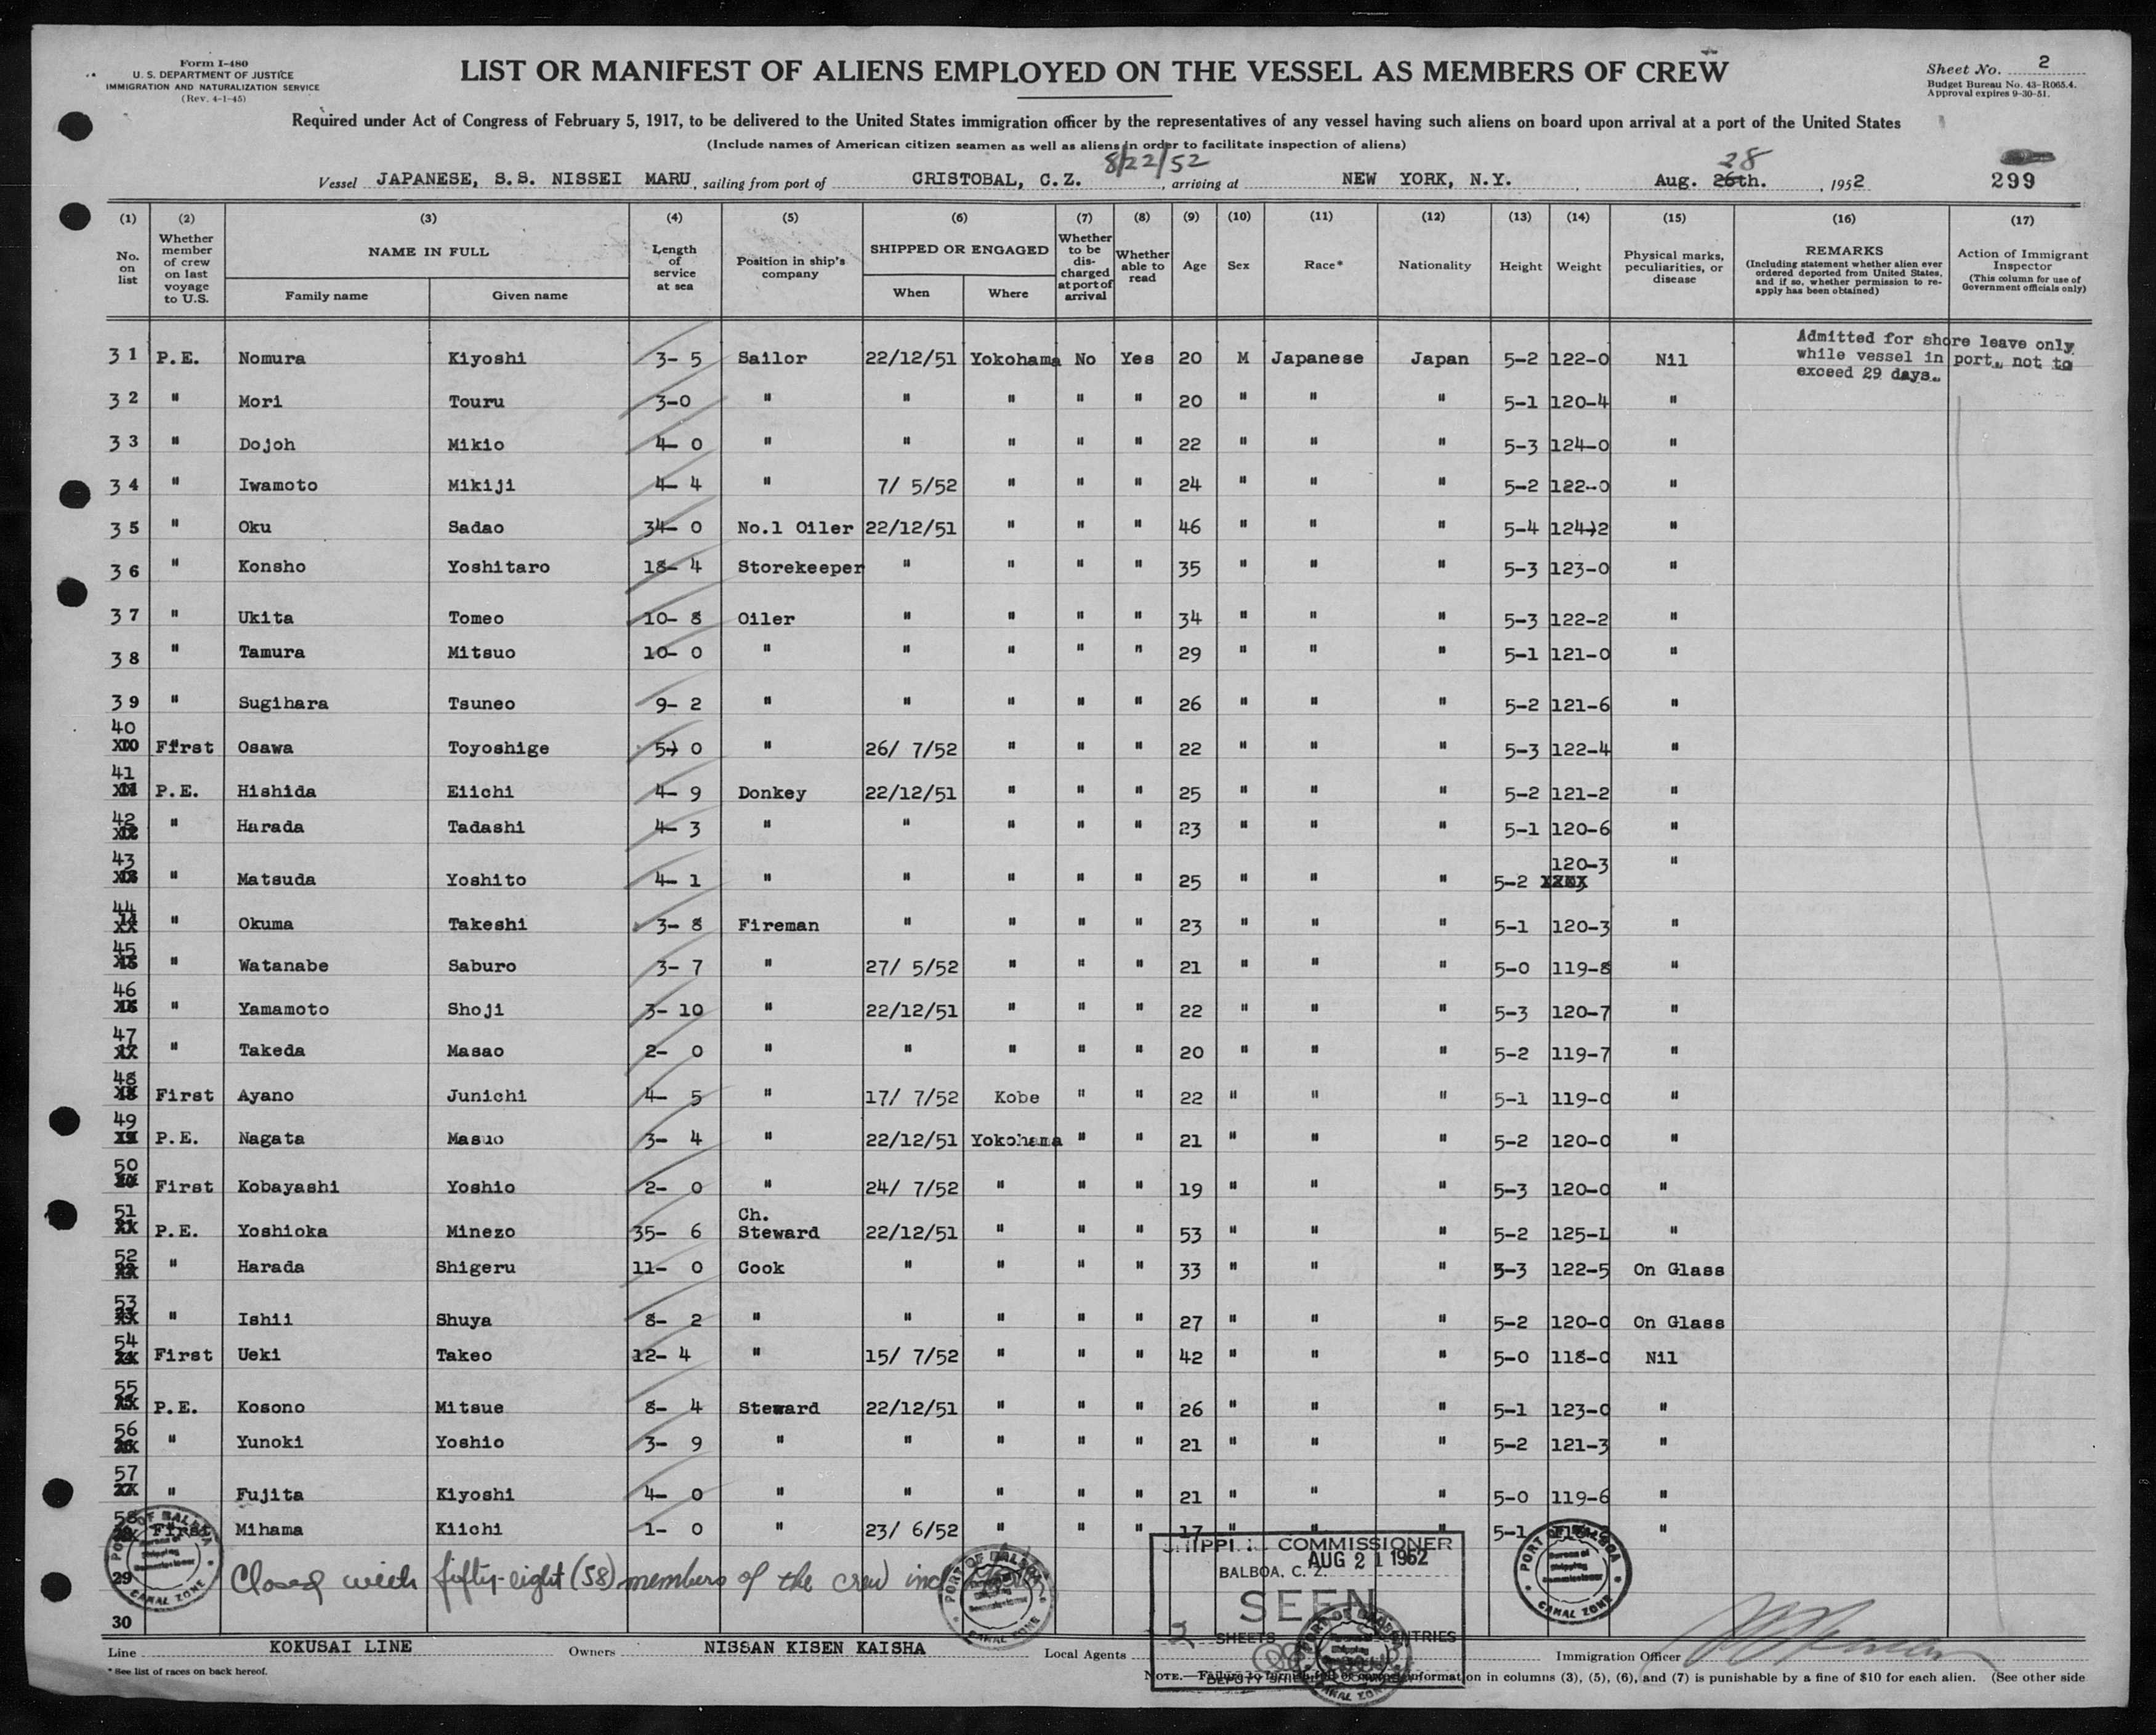 Form I-480
U. S. DEPARTMENT OF JUSTICE
IMMIGRATION AND NATURALIZATION SERVICE
(Rev. 4-1-45)
LIST OR MANIFEST OF ALIENS EMPLOYED ON THE VESSEL AS MEMBERS OF CREW
Sheet No. 2
Budget Bureau No. 43-R065.4.
Approval expires 9-30-51.
Required under Act of Congress of February 5, 1917, to be delivered to the United States immigration officer by the representatives of any vessel having such aliens on board upon arrival at a port of the United States
(Include names of American citizen seamen as well as aliens in order to facilitate inspection of aliens)
8/22/52
28
Vessel JAPANESE, S.S. NISSEI MARU, sailing from port of CRISTOBAL, C.Z., arriving at NEW YORK, N.Y. Aug. 26th., 1952 299
(1) (2) (3) (4) (5) (6) (7) (8) (9) (10) (11) (12) (13) (14) (15) (16) (17)
No. on list
Whether member of crew on last voyage to U.S.
NAME IN FULL
Family name Given name
Length of service at sea
Position in ship's company
SHIPPED OR ENGAGED
When Where
Whether to be discharged at port of arrival
Whether able to read
Age
Sex
Race*
Nationality
Height
Weight
Physical marks, peculiarities, or disease
REMARKS
(Including statement whether alien ever ordered deported from United States, and if so, whether permission to re-apply has been obtained)
Action of Immigrant Inspector
(This column for use of Government officials only)
Admitted for shore leave only
while vessel in port, not to
exceed 29 days.
31 P.E. Nomura Kiyoshi 3- 5 Sailor 22/12/51 Yokohama No Yes 20 M Japanese Japan 5-2 122-0 Nil
32 " Mori Touru 3-0 " " " " " 20 " " " 5-1 120-4 "
33 " Dojoh Mikio 4- 0 " " " " " 22 " " " 5-3 124-0 "
34 " Iwamoto Mikiji 4- 4 " 7/ 5/52 " " " 24 " " " 5-2 122-0 "
35 " Oku Sadao 34- 0 No.1 Oiler 22/12/51 " " " 46 " " " 5-4 124-2 "
36 " Konsho Yoshitaro 18- 4 Storekeeper " " " " 35 " " " 5-3 123-0 "
37 " Ukita Tomeo 10- 8 Oiler " " " " 34 " " " 5-3 122-2 "
38 " Tamura Mitsuo 10- 0 " " " " " 29 " " " 5-1 121-0 "
39 " Sugihara Tsuneo 9- 2 " " " " " 26 " " " 5-2 121-6 "
40 First Osawa Toyoshige 5- 0 " 26/ 7/52 " " " 22 " " " 5-3 122-4 "
41 P.E. Hishida Eiichi 4- 9 Donkey 22/12/51 " " " 25 " " " 5-2 121-2 "
42 " Harada Tadashi 4- 3 " " " " " 23 " " " 5-1 120-6 "
43 " Matsuda Yoshito 4- 1 " " " " " 25 " " " 5-2 120-3 "
44 " Okuma Takeshi 3- 8 Fireman " " " " 23 " " " 5-1 120-3 "
45 " Watanabe Saburo 3- 7 " 27/ 5/52 " " " 21 " " " 5-0 119-8 "
46 " Yamamoto Shoji 3- 10 " 22/12/51 " " " 22 " " " 5-3 120-7 "
47 " Takeda Masao 2- 0 " " " " " 20 " " " 5-2 119-7 "
48 First Ayano Junichi 4- 5 " 17/ 7/52 Kobe " " 22 " " " 5-1 119-0 "
49 P.E. Nagata Masuo 3- 4 " 22/12/51 Yokohama " " 21 " " " 5-2 120-0 "
50 First Kobayashi Yoshio 2- 0 " 24/ 7/52 " " " 19 " " " 5-3 120-0 "
51 P.E. Yoshioka Minezo 35- 6 Ch. Steward 22/12/51 " " " 53 " " " 5-2 125-1 "
52 " Harada Shigeru 11- 0 Cook " " " " 33 " " " 5-3 122-5 On Glass
53 " Ishii Shuya 8- 2 " " " " " 27 " " " 5-2 120-0 On Glass
54 First Ueki Takeo 12- 4 " 15/ 7/52 " " " 42 " " " 5-0 118-0 Nil
55 P.E. Kosono Mitsue 8- 4 Steward 22/12/51 " " " 26 " " " 5-1 123-0 "
56 " Yunoki Yoshio 3- 9 " " " " " 21 " " " 5-2 121-3 "
57 " Fujita Kiyoshi 4- 0 " " " " " 21 " " " 5-0 119-6 "
58 First Mihama Kiichi 1- 0 " 23/ 6/52 " " " 17 " " " 5-1 "
29 Closed with fifty-eight (58) members of the crew incl
30
PORT OF BALBOA
Bureau of Shipping Commissioner
CANAL ZONE
PORT OF BALBOA
CANAL ZONE
SHIPPING COMMISSIONER
AUG 21 1952
BALBOA, C. Z.
SEEN
2 SHEETS ENTRIES
PORT OF BALBOA
Bureau of Shipping Commissioner
CANAL ZONE
Line KOKUSAI LINE Owners NISSAN KISEN KAISHA Local Agents Immigration Officer
* See list of races on back hereof.
NOTE.—Failure to furnish full or information in columns (3), (5), (6), and (7) is punishable by a fine of $10 for each alien. (See other side